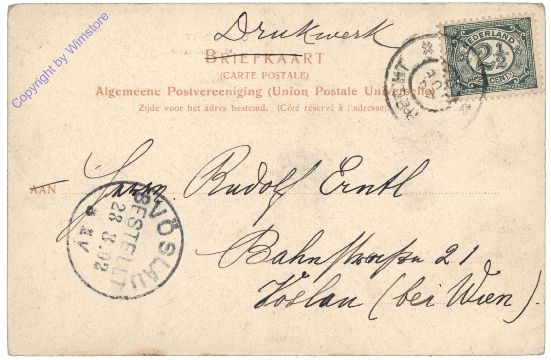 Drukwerk
BRIEFKAART
(CARTE POSTALE)
Algemeene Postvereeniging (Union Postale Universelle)
Zijde voor het adres bestemd. (Côté réservé à l'adresse)
NEDERLAND
2½
CENT
AAN Herrn Rudolf Erntl
Bahnstraße 21
Vöslau (bei Wien).
VÖSLAU
BESTELLT
28 8.02
Copyright by Wimstore